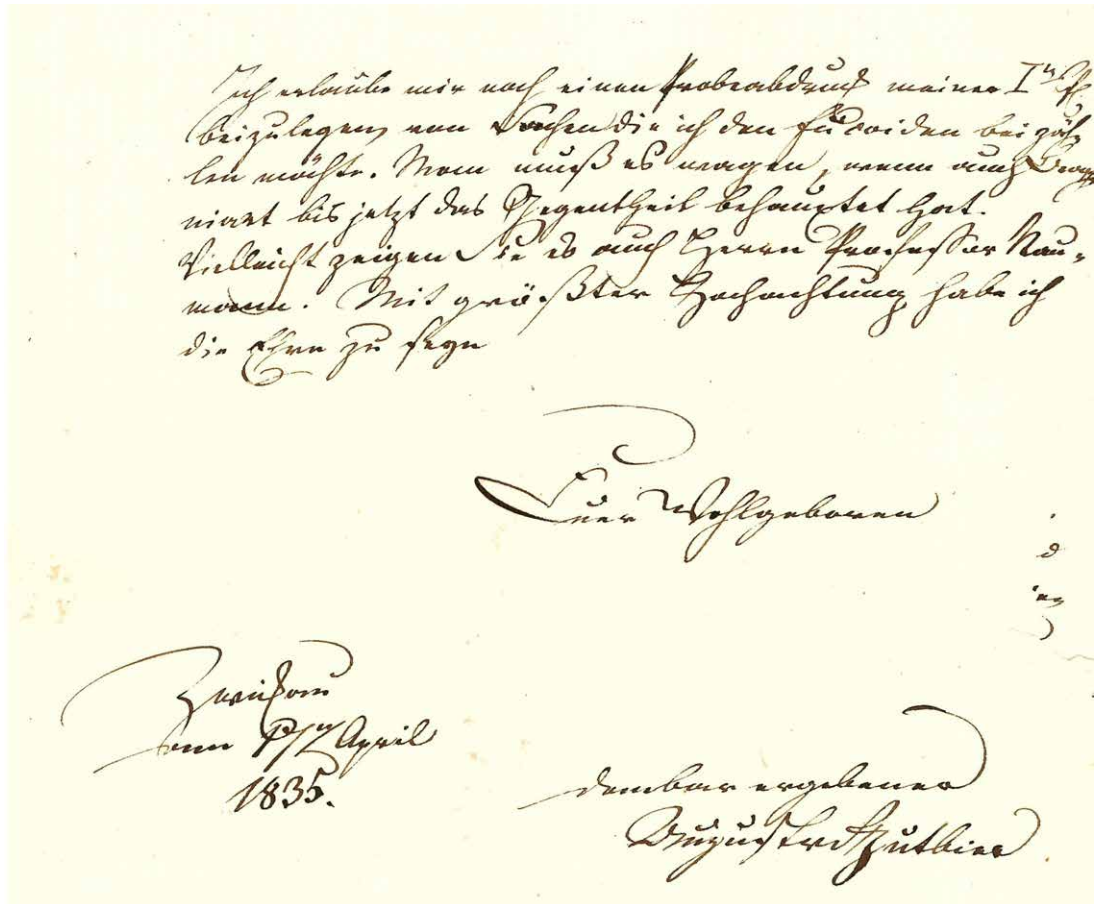 Ich erlaube mir noch einen Probeabdruck meiner I
beizulegen, von Sachen die ich den Fucoiden beizäh-
len möchte. Man muß es wagen, wenn auch Brong-
niart bis jetzt das Gegentheil behauptet hat.
Vielleicht zeigen Sie es auch Herrn Professor Nau-
mann. Mit größter Hochachtung habe ich
die Ehre zu seyn
Euer Wohlgeboren
Zwickau
am April
1835.
dankbar ergebener
August v Gutbier